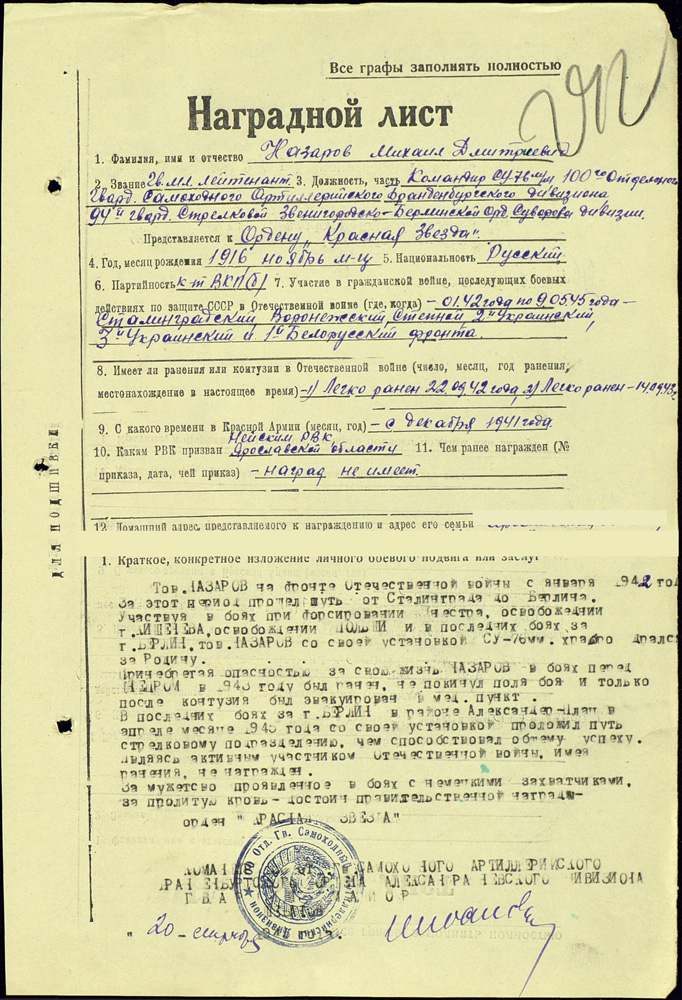 Все графы заполнять полностью
Наградной лист
1. Фамилия, имя и отчество Назаров Михаил Дмитриевич
2. Звание Гв. мл. лейтенант 3. Должность, часть Командир СУ76 м/м 100го Отдельного
Гвард. Самоходного Артиллерийского Бранденбургского дивизиона
94й гвард. Стрелковой Звенигородско-Берлинской Орд. Суворова дивизии.
Представляется к Ордену "Красная Звезда".
4. Год, месяц рождения 1916 ноябрь м-ц 5. Национальность Русский
6. Партийность к-т ВКП(б) 7. Участие в гражданской войне, последующих боевых
действиях по защите СССР в Отечественной войне (где, когда) – 01.42 года по 9.05.45 года –
Сталинградский, Воронежский, Степной, 2й Украинский,
3й Украинский и 1й Белорусский фронта.
8. Имеет ли ранения или контузии в Отечественной войне (число, месяц, год ранения,
местонахождение в настоящее время) – 1) Легко ранен 22.09.42 года, 2) Легко ранен – 14.09.43 г.
9. С какого времени в Красной Армии (месяц, год) – с декабря 1941 года.
Нейским РВК,
10. Каким РВК призван Ярославской области 11. Чем ранее награжден (№
приказа, дата, чей приказ) – наград не имеет.
12. Домашний адрес, представляемого к награждению и адрес его семьи
ДЛЯ ПОДШИВКИ
1. Краткое, конкретное изложение личного боевого подвига или заслуг
Тов. НАЗАРОВ на фронте Отечественной войны с января 1942 год
За этот период прошел путь от Сталинграда до Берлина.
Участвуя в боях при форсировании Днестра, освобождении
г. КИШЕНЕВА, освобождении ПОЛЬШИ и в последних боях за
г. БЕРЛИН, тов. НАЗАРОВ со своей установкой СУ-76мм. храбро дрался
за Родину.
Принебрегая опасностью за свою жизнь НАЗАРОВ в боях перед
ДНЕПРОМ в 1943 году был ранен, не покинул поля боя и только
после контузия был эвакуирован в мед. пункт.
В последних боях за г. БЕРЛИН в районе Александер-Плац в
апреле месяце 1945 года со своей установкой проложил путь
стрелковому подразделению, чем способствовал общему успеху.
Являясь активным участником Отечественной войны, имея
ранения, не награжден.
За мужество проявленное в боях с немецкими захватчиками,
за пролитую кровь – достоин правительственной награды-
орден "КРАСНАЯ ЗВЕЗДА"
САМОХОДНОГО АРТИЛЛЕРИЙСКОГО
АЛЕКСАНДРА НЕВСКОГО ДИВИЗИОНА
100 Отд. Гв. Самоходный Артиллерийский Дивизион